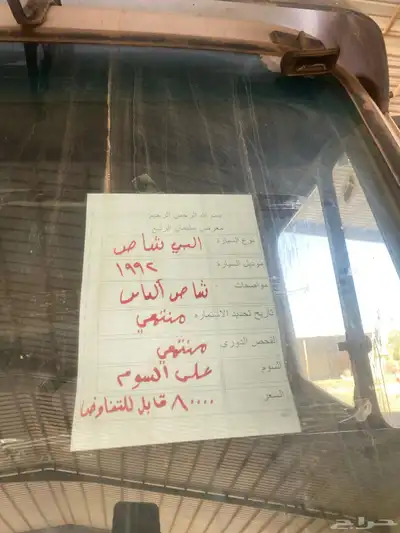 بسم الله الرحمن الرحيم
معرض سلمان الربع
نوع السيارة السي شاص
موديل السيارة ١٩٩٢
مواصفات شاص الماس
تاريخ تجديد الاستمارة منتهي
الفحص الدوري منتهي
السوم على السوم
السعر ٨٠٠٠٠ قابل للتفاوض
حراج